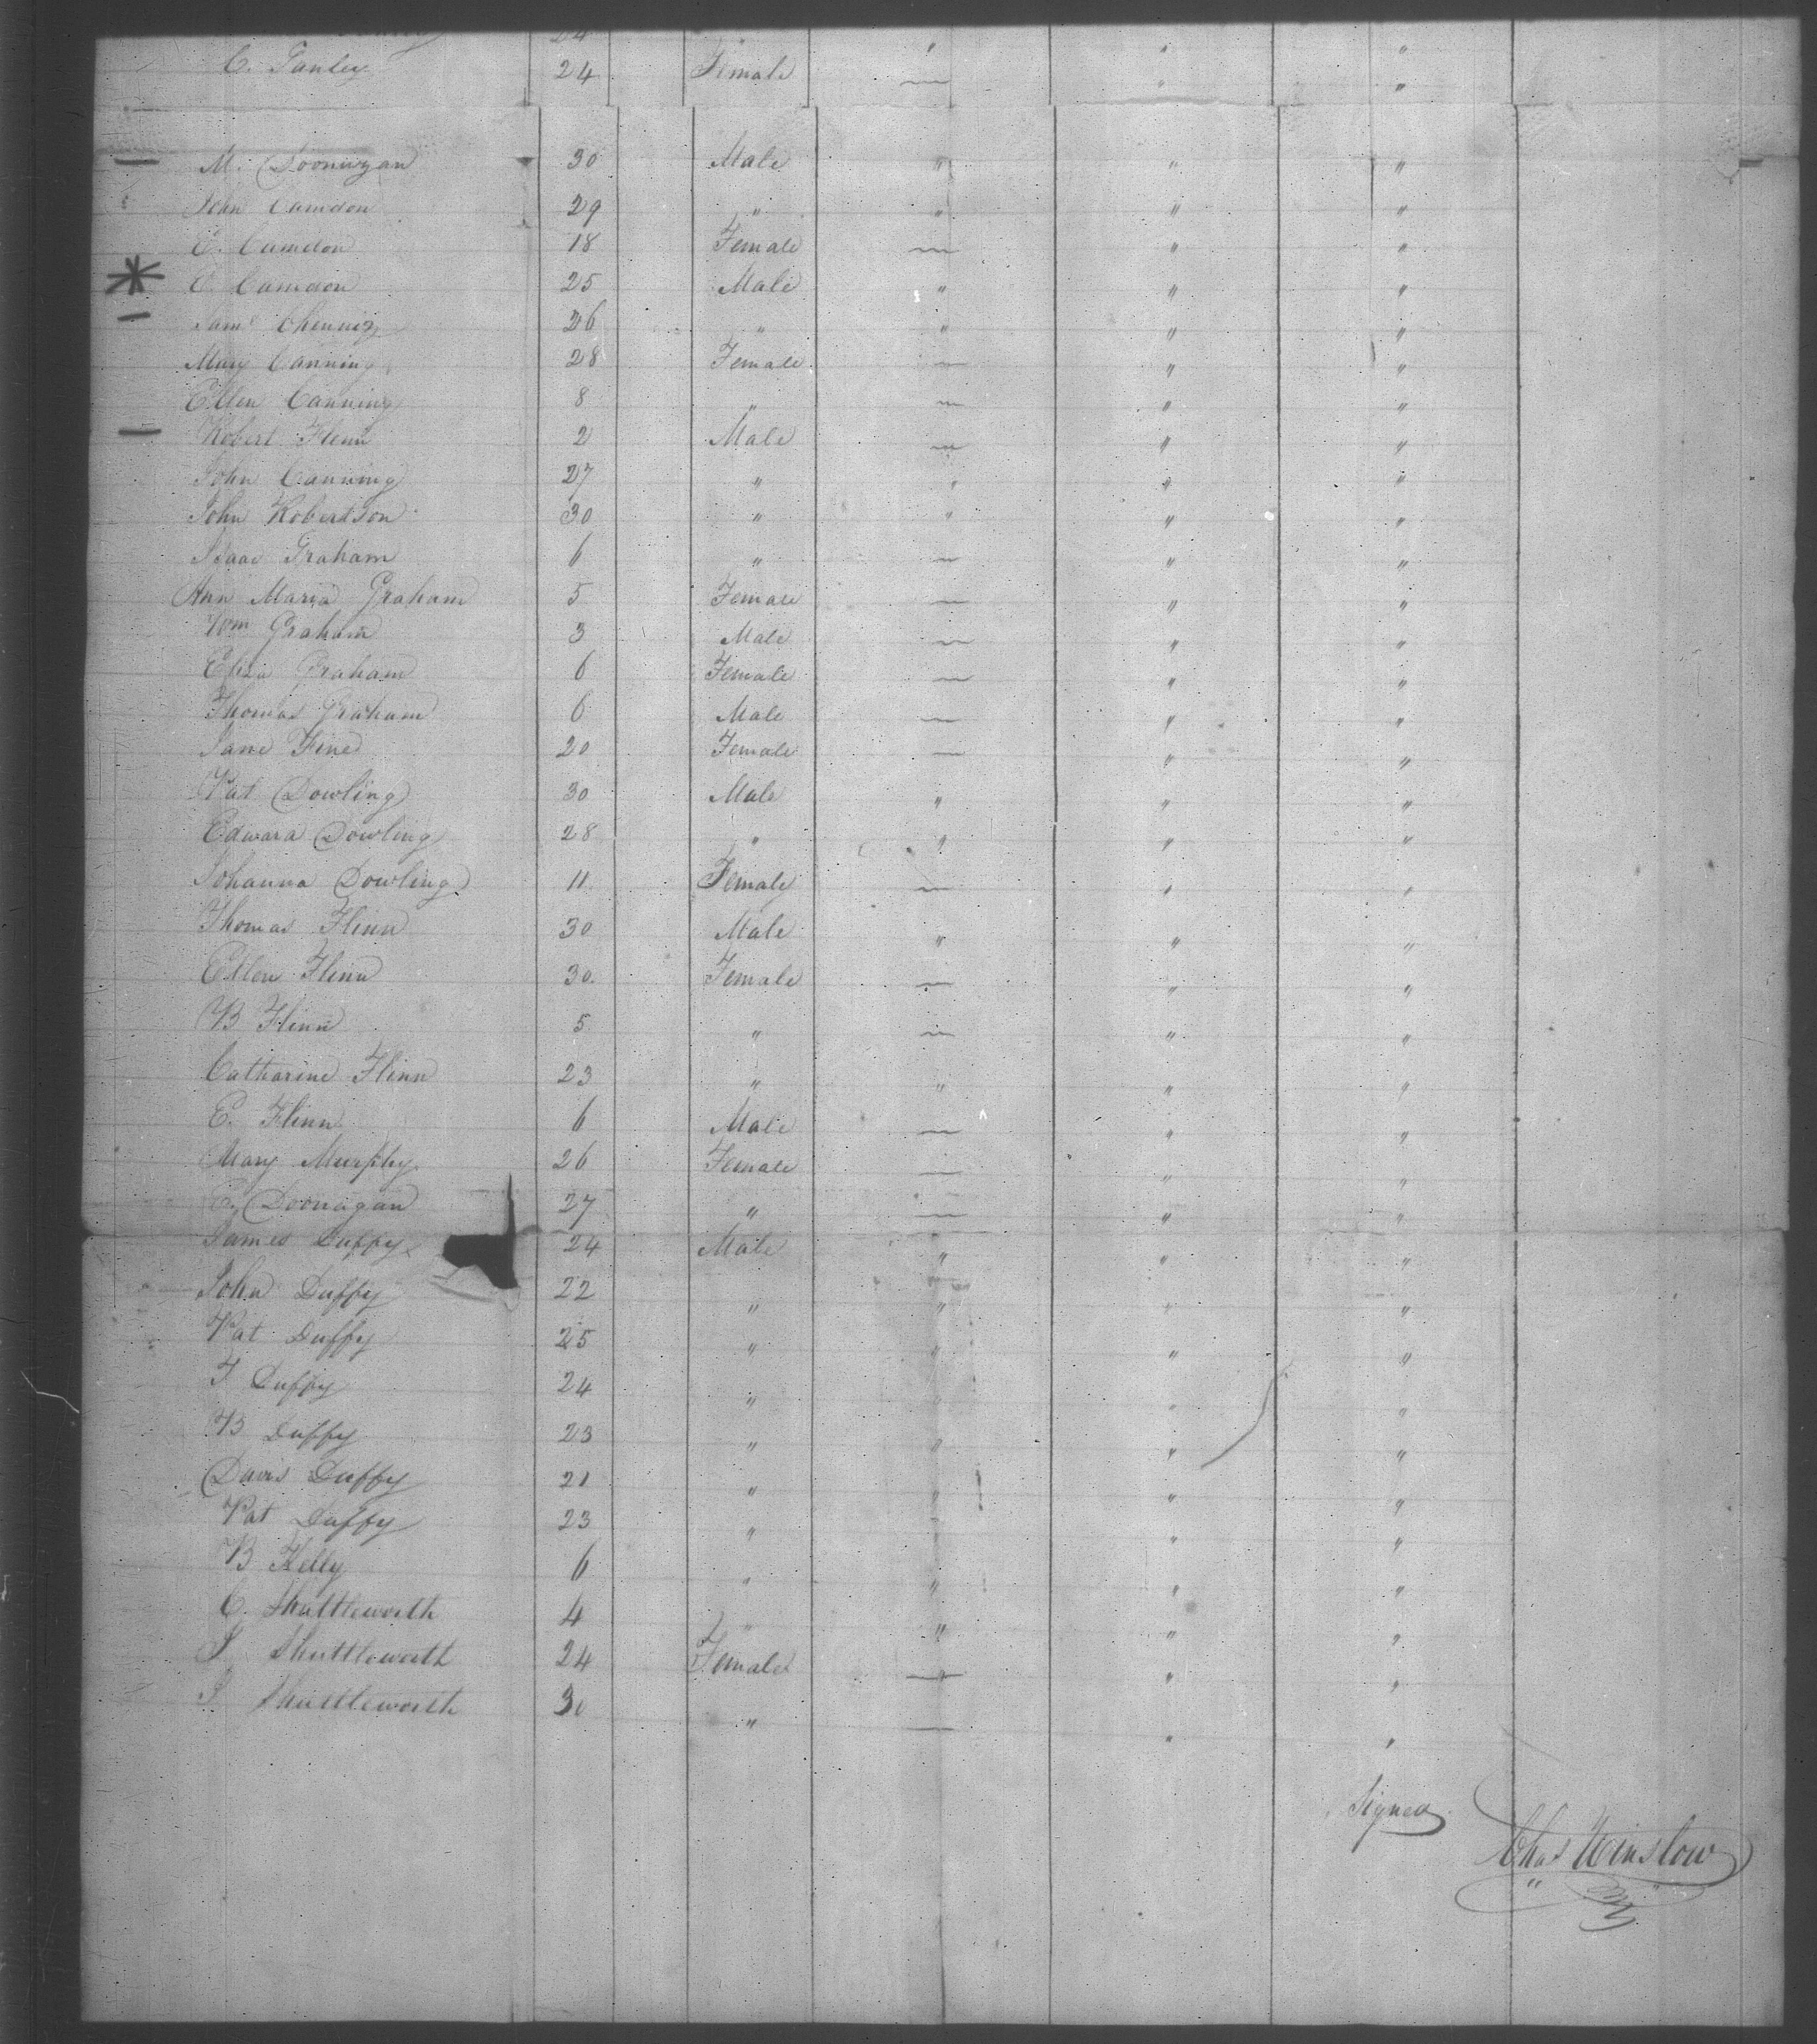 24 " " "
C. Ganley 24 Female — " "
M. Doonigan 30 Male " " "
John Camdon 29 " " " "
E. Camdon 18 Female — " "
C. Camdon 25 Male " " "
Saml Chening 26 " " " "
Mary Canning 28 Female — " "
Ellen Canning 8 " — " "
Robert Flinn 2 Male — " "
John Canning 27 " " " "
John Robertson 30 " " " "
Isaac Graham 6 " — " "
Ann Maria Graham 5 Female — " "
Wm Graham 3 Male — " "
Eliza Graham 6 Female — " "
Thomas Graham 6 Male — " "
Jane Fine 20 Female — " "
Pat Dowling 30 Male " " "
Edward Dowling 28 " " " "
Johanna Dowling 11 Female — " "
Thomas Flinn 30 Male " " "
Ellen Flinn 30 Female — " "
B Flinn 5 " — " "
Catharine Flinn 23 " " " "
E. Flinn 6 Male — " "
Mary Murphy 26 Female — " "
C. Doonagan 27 " — " "
James Duffy 24 Male " " "
John Duffy 22 " " " "
Pat Duffy 25 " " " "
T Duffy 24 " " " "
B Duffy 23 " " " "
Davis Duffy 21 " " " "
Pat Duffy 23 " " " "
B Kelly 6 " " " "
C. Shuttleworth 4 " " " "
J Shuttleworth 24 Female — " "
J Shuttleworth 30 " — " "
Signed
Chas Winslow